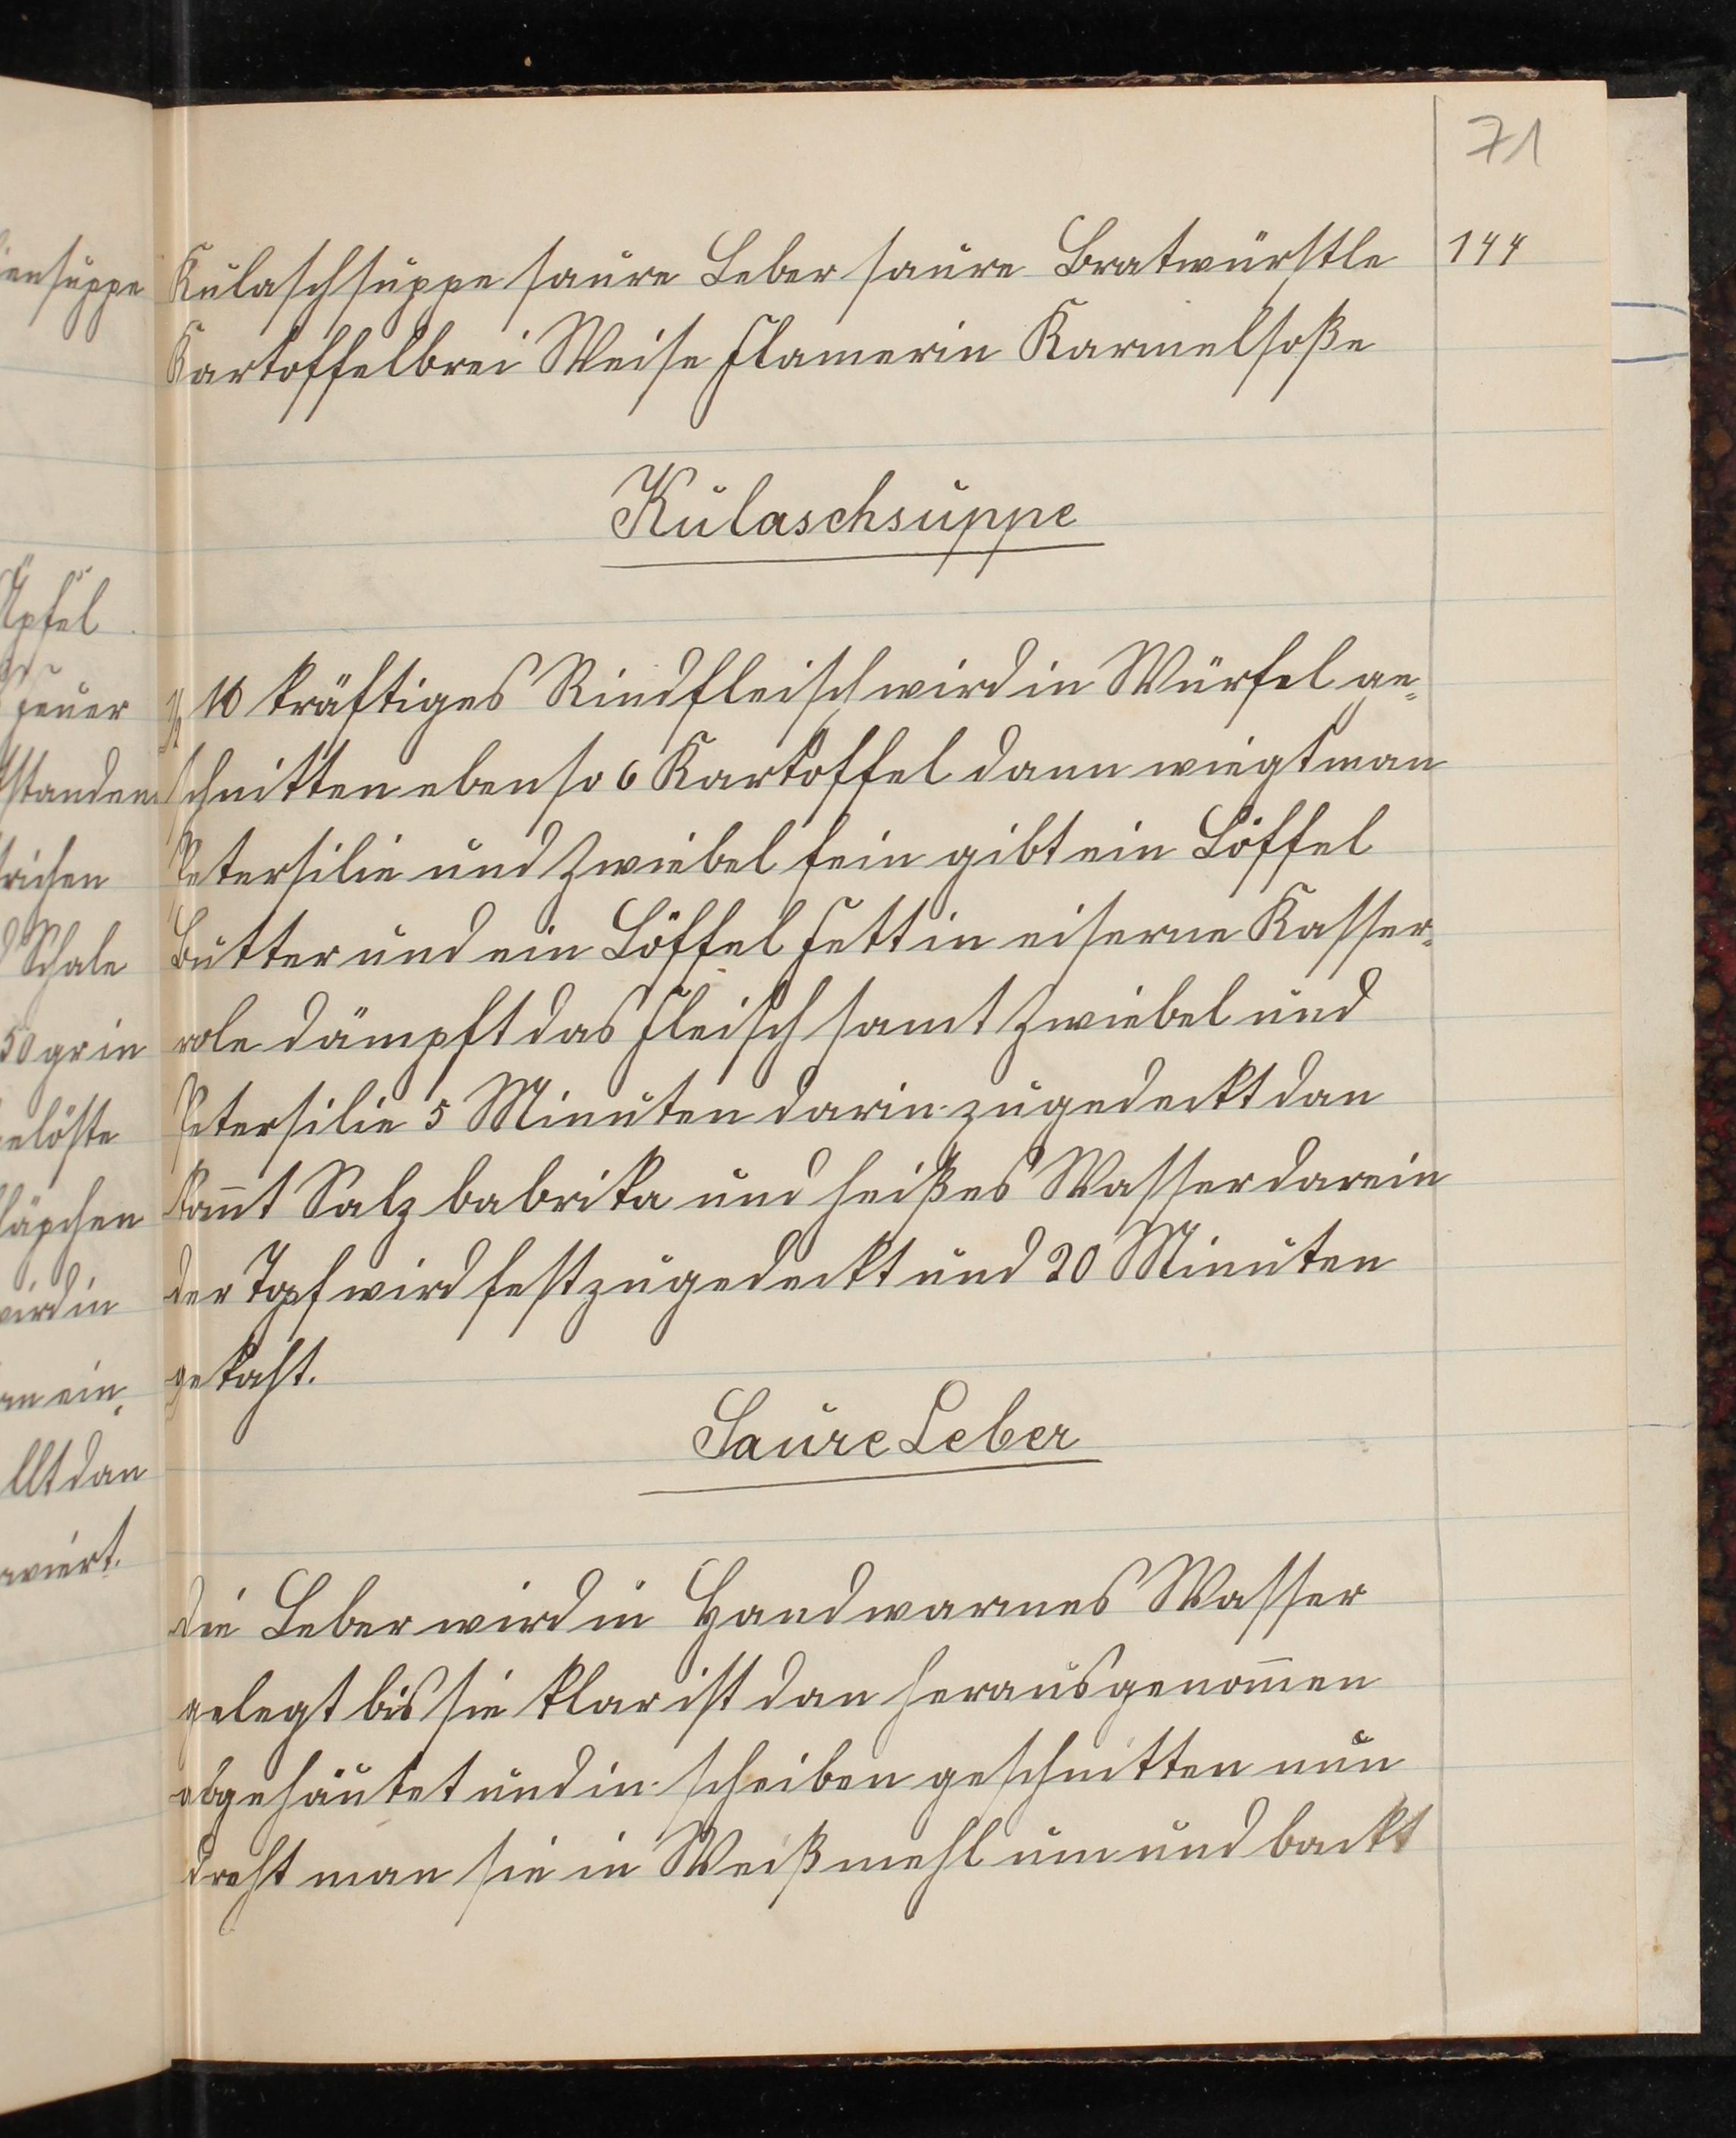 71
144
Kulaschsuppe saure Leber saure Bratwürstle
Kartoffelbrei Weise Flamerin Karmelsoße
Kulaschsuppe
1/2 kräftiges Rindfleisch wird in Würfel ge-
schnitten ebenso 6 Kartoffel dann wiegt man
Petersilie und Zwiebel fein gibt ein Löffel
Butter und ein Löffel Fett in eiserne Kasser-
role dämpft das Fleisch samt Zwiebel und
Petersilie 5 Minuten darin zugedeckt dan
kom̄t Salz babrika und heißes Wasser darein
der Topf wird fest zugedeckt und 20 Minuten
gekocht.
Saure Leber
die Leber wird in Handwarmes Wasser
gelegt bis sie klar ist dan herausgenom̄en
abgehäutet und in scheiben geschnitten nun
dreht man sie in Weißmehl um und backt
iensuppe
Äpfel
Feuer
standen
Schale
50 gr in
elöste
wird in
an ein-
llt dan
rviert.